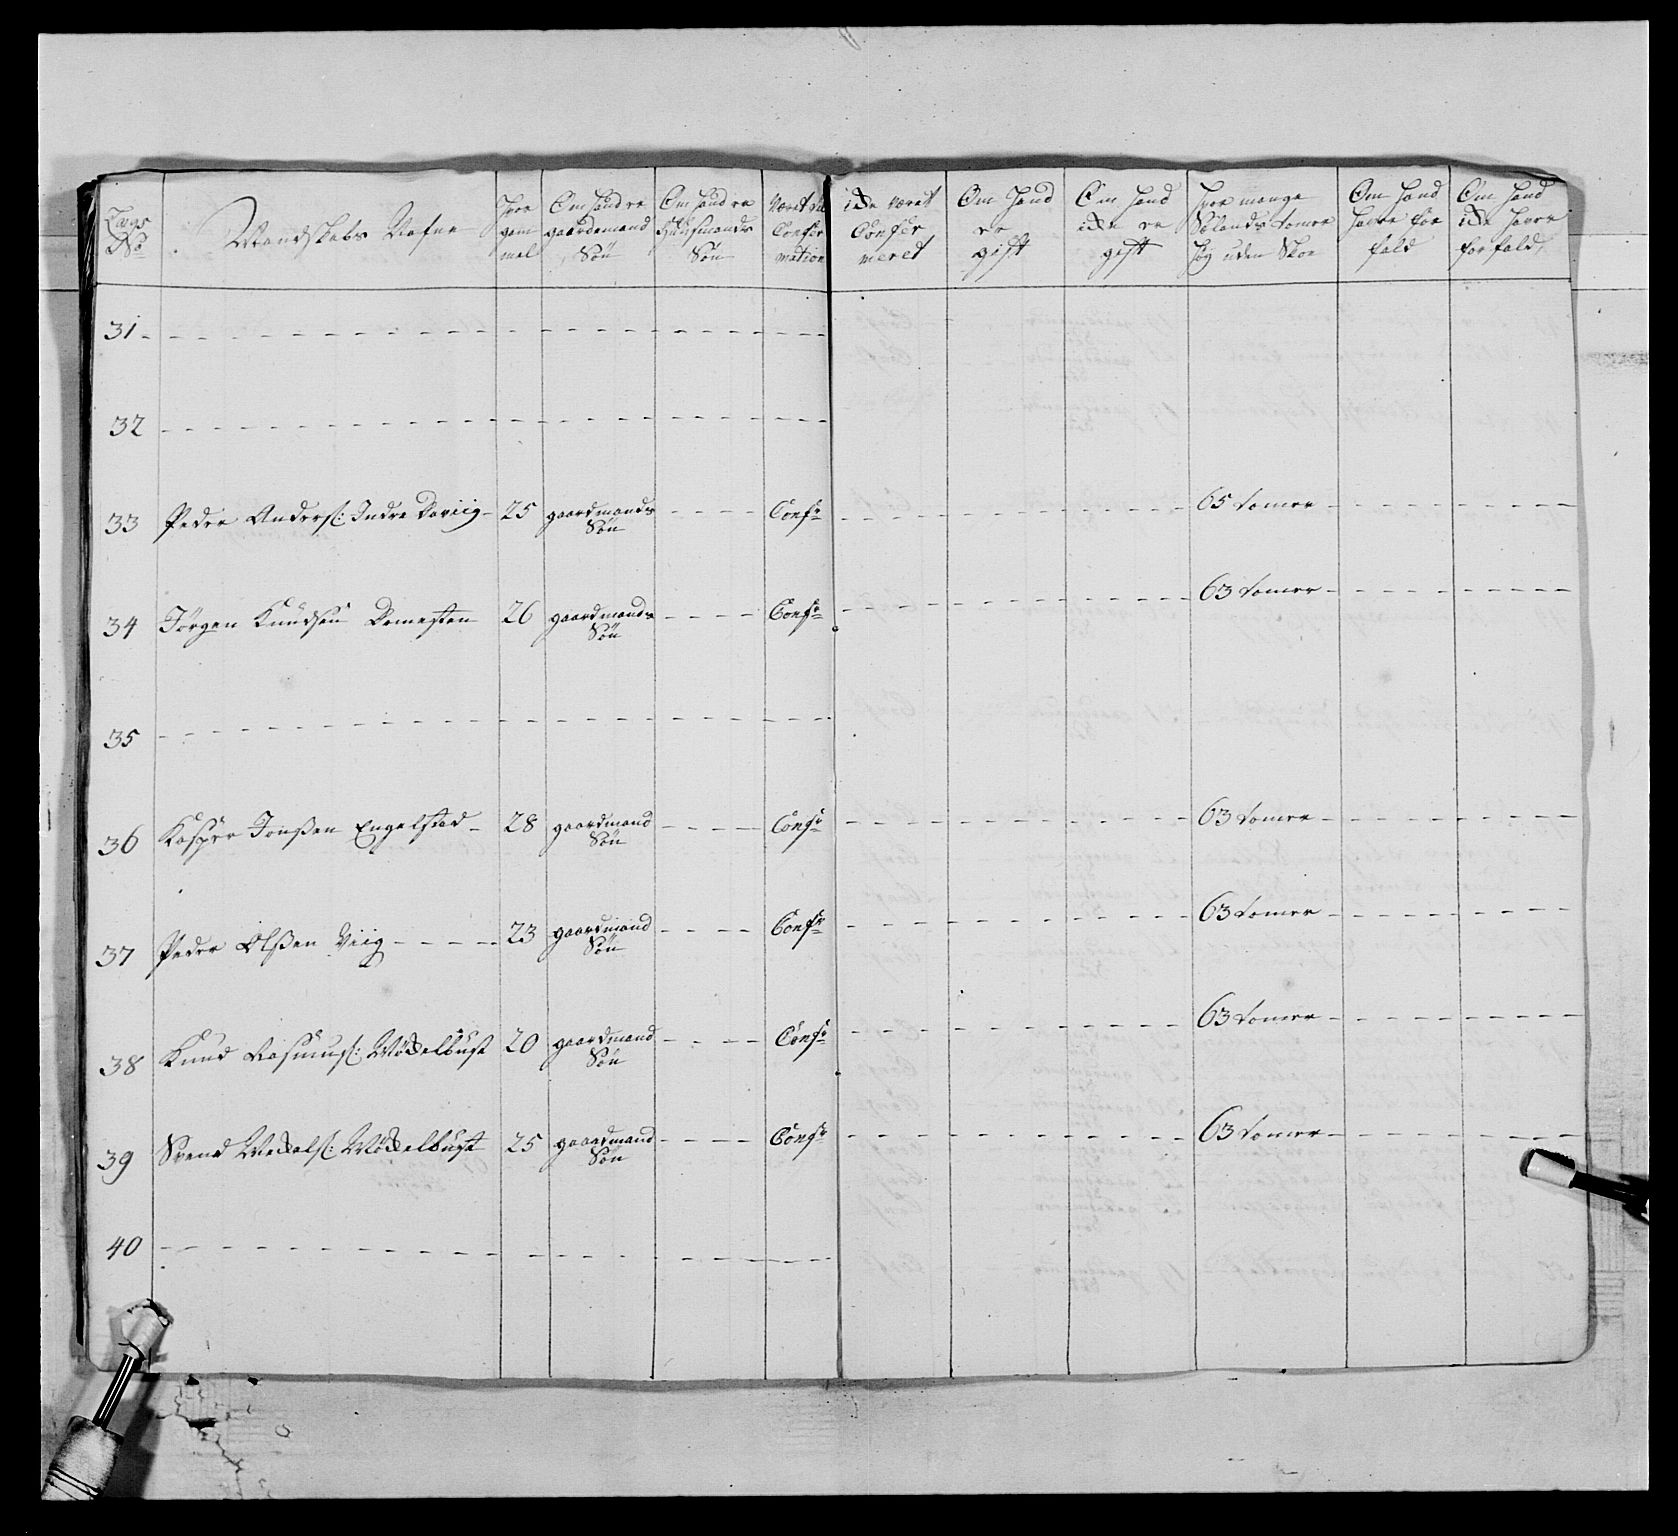 Lægs No Mandskabs Nafne Hvor gam mel Om hand er gaardmand Søn Om hand er Huusmands Søn Været til Confir mation ikke været Confir meret Om Hand er gift Om hand ikke er gift Hvor mange Siælands tomer høy uden Skoe Om hand haver for fald Om hand ikke haver for fald
31
32
33 Peder Anders: Indre 25 gaardmands Søn Confr 65 tomer
34 Jørgen Knudsen 26 gaardmands Søn Confr 63 tomer
35
36 Kasper Jonsen Engelstad 28 gaardmand Søn Confr 63 tomer
37 Peder Olsen Viig 23 gaardmand Søn Confr 63 tomer
38 Knud Rasmus: Møkkelbust 20 gaardmand Søn Confr 63 tomer
39 Svend Mekkels: Møkkelbust 25 gaardmand Søn Confr 63 tomer
40